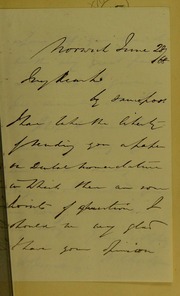 Norwich June 28
/64
My dear Sir
by same post
I have taken the liberty
of sending you a paper
on Dental nomenclature
in which there are some
points of question I
should be very glad
to have your opinion